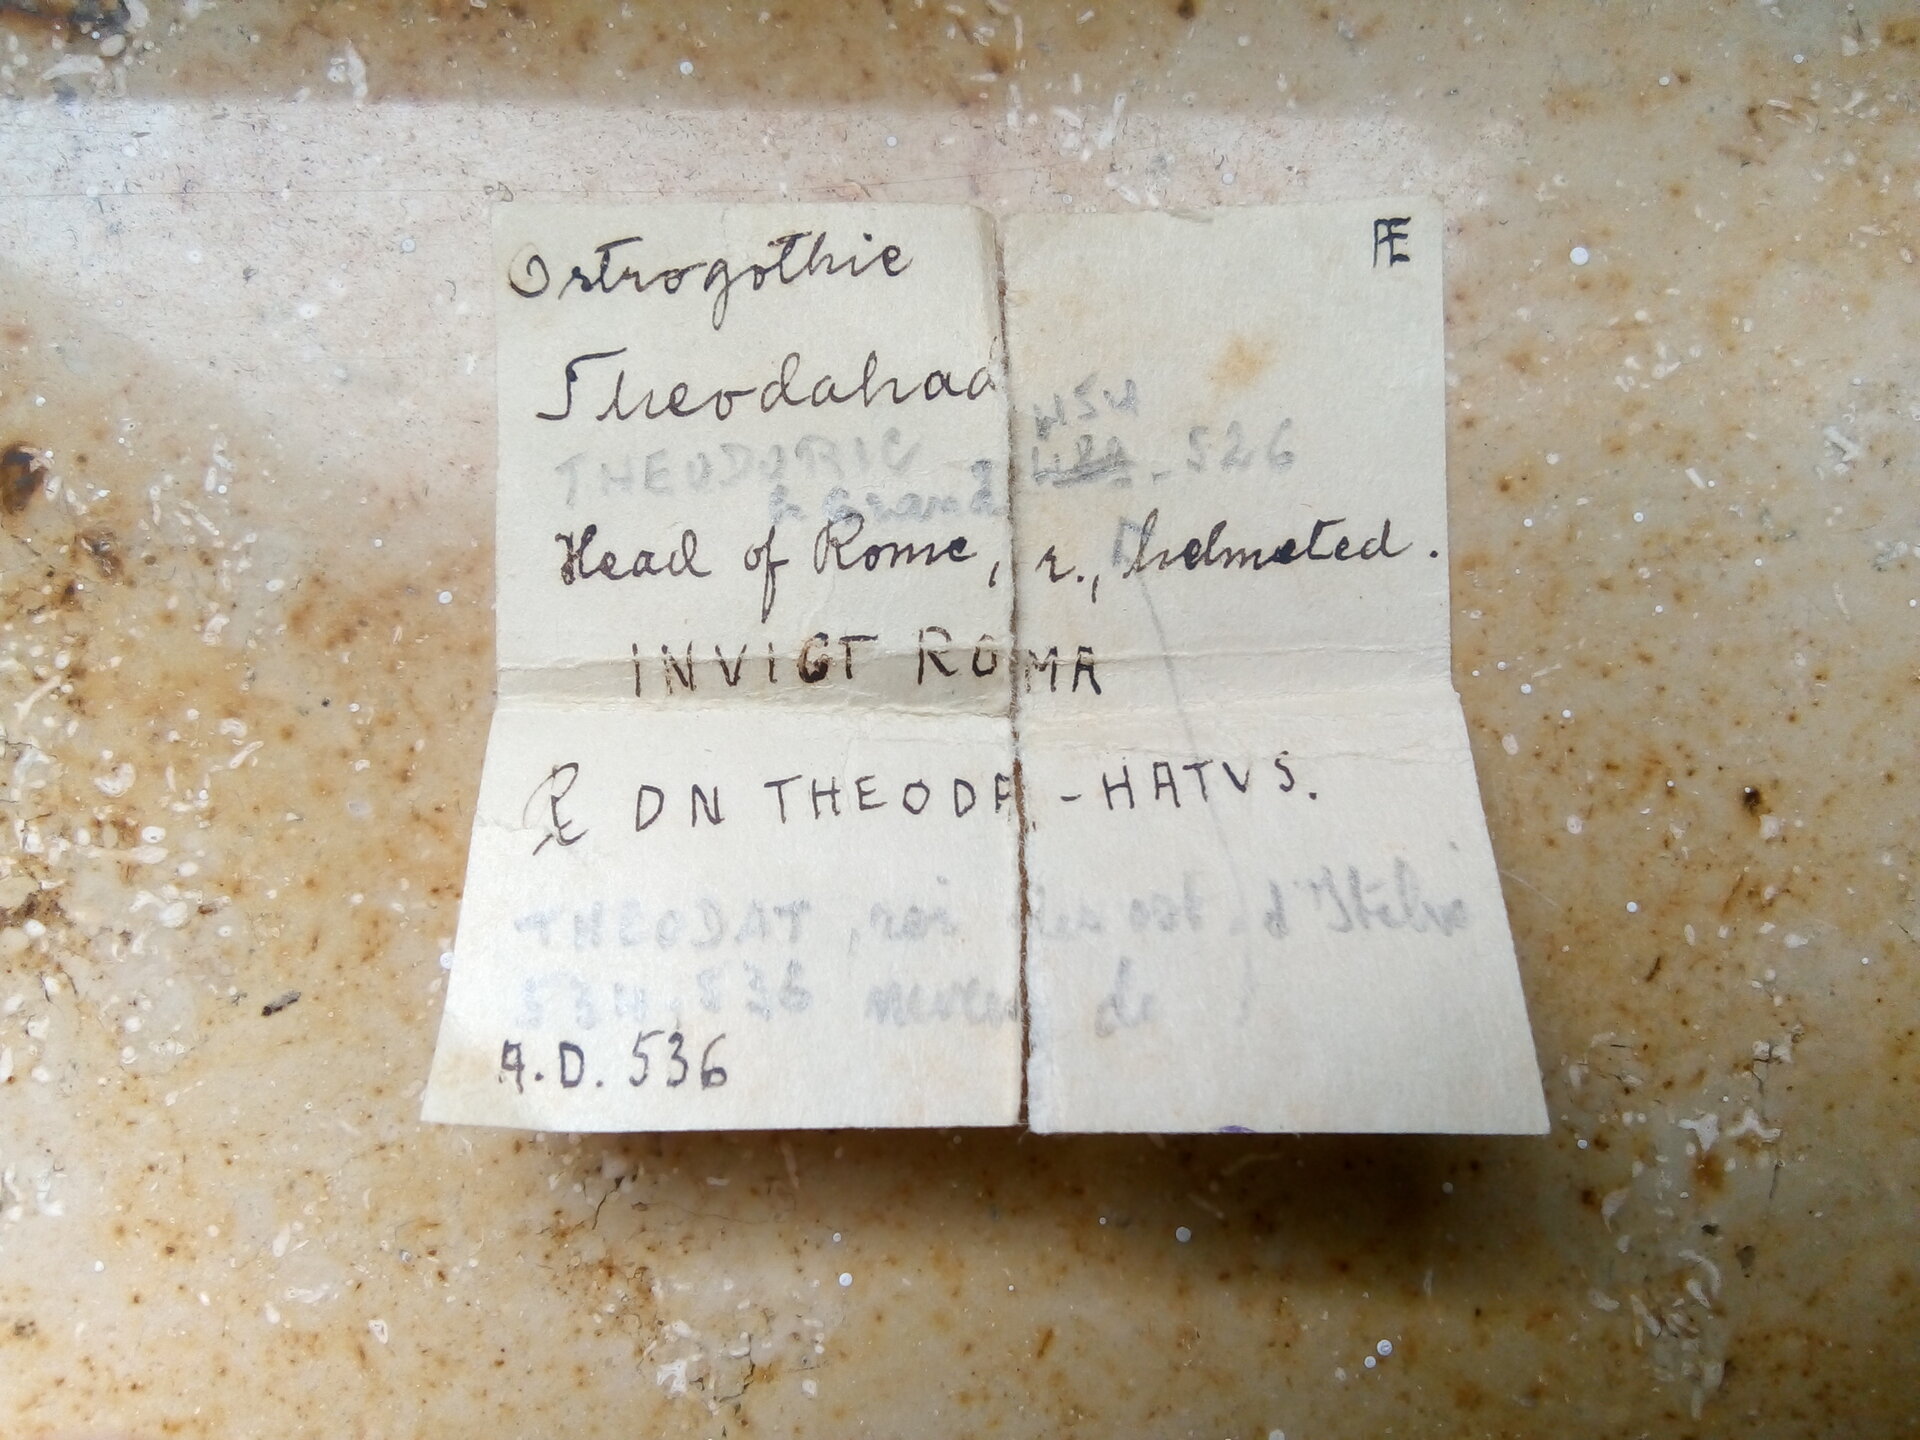 Ostrogothic Æ
Theodahad
454
THEODORIC - 526
le Grand
Head of Rome, r., helmeted.
INVICT ROMA
℞ DN THEODA - HATVS.
THEODAT, roi des ost. d'Italie
534, 536 neveu de
A.D. 536